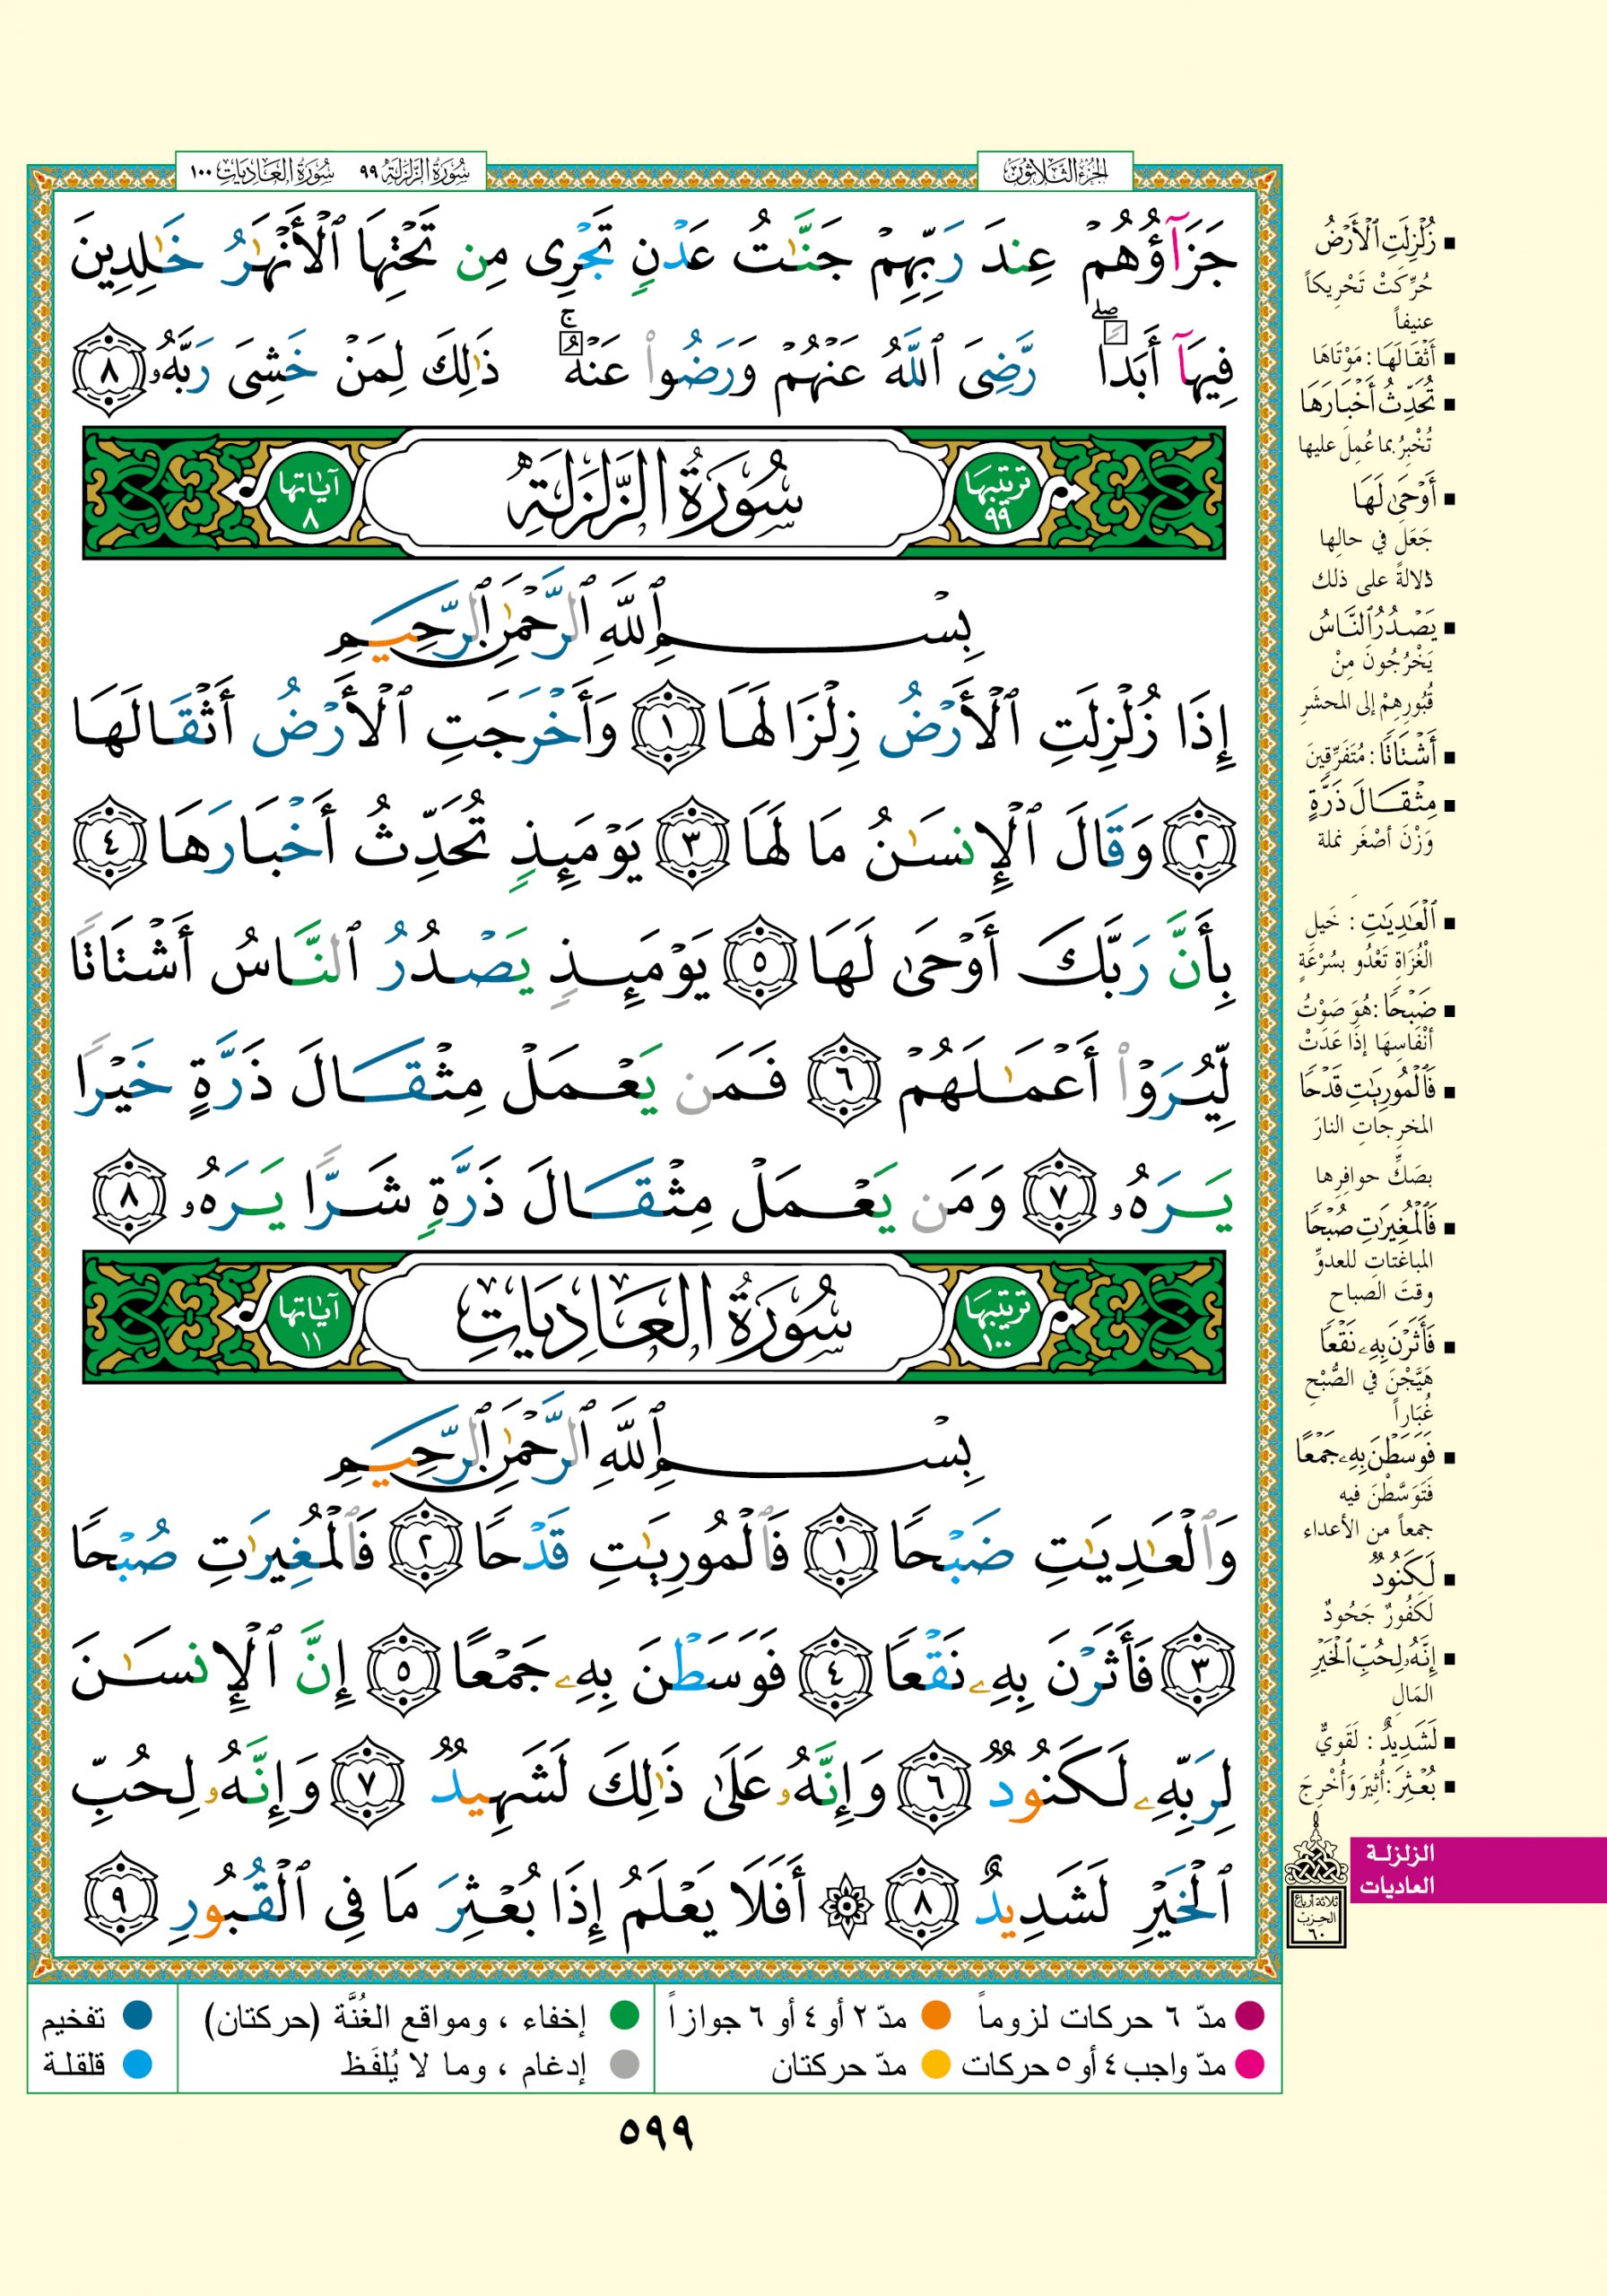 الجزء الثلاثون
سورة الزلزلة ٩٩ سورة العاديات ١٠٠
جَزَآؤُهُمْ عِندَ رَبِّهِمْ جَنَّٰتُ عَدْنٍ تَجْرِى مِن تَحْتِهَا ٱلْأَنْهَٰرُ خَٰلِدِينَ
فِيهَآ أَبَدًا ۖ رَّضِىَ ٱللَّهُ عَنْهُمْ وَرَضُوا۟ عَنْهُ ۚ ذَٰلِكَ لِمَنْ خَشِىَ رَبَّهُۥ ٨
ترتيبها ٩٩ سُورَةُ الزَّلْزَلَةِ آياتها ٨
بِسْمِ ٱللَّهِ ٱلرَّحْمَٰنِ ٱلرَّحِيمِ
إِذَا زُلْزِلَتِ ٱلْأَرْضُ زِلْزَالَهَا ١ وَأَخْرَجَتِ ٱلْأَرْضُ أَثْقَالَهَا
٢ وَقَالَ ٱلْإِنسَٰنُ مَا لَهَا ٣ يَوْمَئِذٍ تُحَدِّثُ أَخْبَارَهَا ٤
بِأَنَّ رَبَّكَ أَوْحَىٰ لَهَا ٥ يَوْمَئِذٍ يَصْدُرُ ٱلنَّاسُ أَشْتَاتًا
لِّيُرَوْا۟ أَعْمَٰلَهُمْ ٦ فَمَن يَعْمَلْ مِثْقَالَ ذَرَّةٍ خَيْرًا
يَرَهُۥ ٧ وَمَن يَعْمَلْ مِثْقَالَ ذَرَّةٍ شَرًّا يَرَهُۥ ٨
ترتيبها ١٠٠ سُورَةُ العَادِيَاتِ آياتها ١١
بِسْمِ ٱللَّهِ ٱلرَّحْمَٰنِ ٱلرَّحِيمِ
وَٱلْعَٰدِيَٰتِ ضَبْحًا ١ فَٱلْمُورِيَٰتِ قَدْحًا ٢ فَٱلْمُغِيرَٰتِ صُبْحًا
٣ فَأَثَرْنَ بِهِۦ نَقْعًا ٤ فَوَسَطْنَ بِهِۦ جَمْعًا ٥ إِنَّ ٱلْإِنسَٰنَ
لِرَبِّهِۦ لَكَنُودٌ ٦ وَإِنَّهُۥ عَلَىٰ ذَٰلِكَ لَشَهِيدٌ ٧ وَإِنَّهُۥ لِحُبِّ
ٱلْخَيْرِ لَشَدِيدٌ ٨ ۞ أَفَلَا يَعْلَمُ إِذَا بُعْثِرَ مَا فِى ٱلْقُبُورِ ٩
زُلْزِلَتِ ٱلْأَرْضُ
حُرِّكَتْ تَحْرِيكاً
عنيفاً
أَثْقَالَهَا : مَوْتَاهَا
تُحَدِّثُ أَخْبَارَهَا
تُخْبِرُ بما عُمِلَ عليها
أَوْحَىٰ لَهَا
جَعَلَ في حالِها
دَلالةً على ذلك
يَصْدُرُ ٱلنَّاسُ
يَخْرُجُونَ مِنْ
قُبُورِهِمْ إلى المحشَرِ
أَشْتَاتًا : مُتَفَرِّقِينَ
مِثْقَالَ ذَرَّةٍ
وَزْنَ أصْغَر نملة
ٱلْعَٰدِيَٰتِ : خَيل
الْغُزَاةِ تَعْدُو بسُرْعَةٍ
ضَبْحًا : هُوَ صَوْتُ
أنْفَاسِهَا إذَا عَدَتْ
فَٱلْمُورِيَٰتِ قَدْحًا
المخرِجَاتِ النارَ
بصَكِّ حوافِرِها
فَٱلْمُغِيرَٰتِ صُبْحًا
المباغتاتِ للعدوِّ
وقتَ الصباح
فَأَثَرْنَ بِهِۦ نَقْعًا
هَيَّجْنَ في الصُّبْحِ
غُبَاراً
فَوَسَطْنَ بِهِۦ جَمْعًا
فَتَوَسَّطْنَ فيه
جمعاً من الأعداء
لَكَنُودٌ
لَكَفُورٌ جَحُودٌ
إِنَّهُۥ لِحُبِّ ٱلْخَيْرِ
المَالِ
لَشَدِيدٌ : لَقَويٌّ
بُعْثِرَ : أُثِيرَ وَأُخْرِجَ
الزلزلة
العاديات
ثلاثة أرباع
الحزب
٦٠
مدّ ٦ حركات لزوماً مدّ ٢ أو ٤ أو ٦ جوازاً إخفاء ، ومواقع الغُنَّة (حركتان) تفخيم
مدّ واجب ٤ أو ٥ حركات مدّ حركتان إدغام ، وما لا يُلفَظ قلقلة
٥٩٩